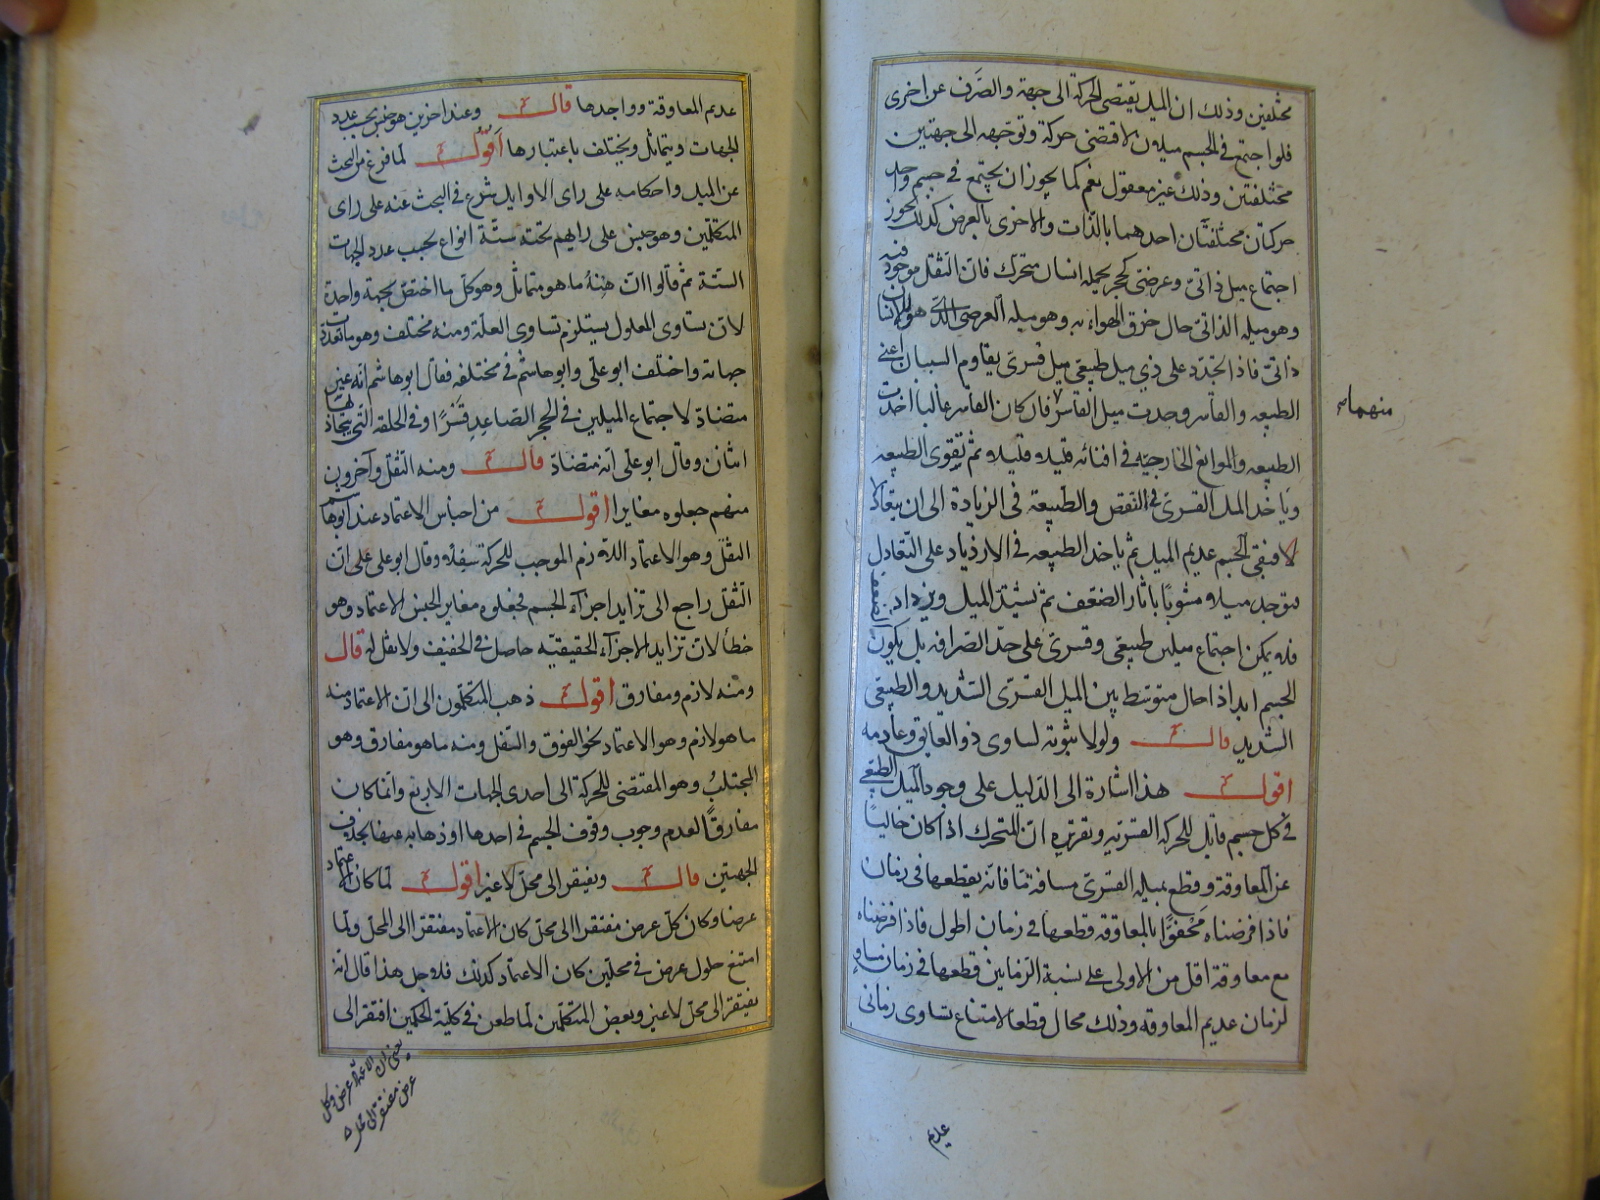 مختلفين وذلك ان الميل يقتضى الحركة الى جهة والصرف عن اخرى
فلو اجتمع فى الجسم ميلان لاقتضى حركة وتوجهه الى جهتين
مختلفتين وذلك غير معقول نعم كما يجوز ان يجتمع فى جسم واحد
حركتان مختلفتان احدهما بالذات والاخرى بالعرض كذلك يجوز
اجتماع ميل ذاتى وعرضى كحجر يحمله انسان متحرك فان الثقل موجود فيه
وهو ميله الذاتى حال خرق الهواء به وهو ميله العرضى الذى هو للانسان
ذاتى فاذا تجدد على ذى ميل طبيعى ميل قسرى يقاوم السببان اعنى
الطبيعه والقاسر وحدث ميل القاسر فان كان القاسر غالبا اخذت
منهما م
الطبيعه والموانع الخارجيه فى افنائه قليلا قليلا ثم تقوى الطبيعه
وياخذ الميل القسرى فى النقص والطبيعة فى الزيادة الى ان يتعادلا
فيبقى الجسم عديم الميل ثم ياخذ الطبيعه فى الازدياد على التعادل
فيوجد ميلا مشوبا باثار الضعف ثم يشتد الميل ويزداد الضعف
فلا يمكن اجتماع ميلين طبيعى وقسرى على حد الصرافه بل يكون
الجسم ابدا ذا حال متوسط بين الميل القسرى الشديد والطبيعى
الشديد قال م ولولا ثبوته لساوى ذو العايق وعادمه
اقول م هذا اشارة الى الدليل على وجود الميل الطبيعى
فى كل جسم قابل للحركه القسريه وتقريره ان المتحرك اذا كان خاليا
عن المعاوقة وقطع بميله القسرى مسافة ما فانه يقطعها فى زمان
فاذا فرضناه محفوفا بالمعاوقة قطعها فى زمان اطول فاذا فرضناه
مع معاوقة اقل من الاولى على نسبة الزمانين قطعها فى زمان مساو
لزمان عديم المعاوقه وذلك محال قطعا لامتناع تساوى زمانى
عديم
عديم المعاوقة وواجدها قال م وعند اخرين هو جنس بحسب عدد
الجهات ويتماثل ويختلف باعتبارها اقول م لما فرغ من البحث
عن الميل واحكامه على راى الاوايل شرع فى البحث عنه على راى
المتكلمين وهو جنس على رايهم تحته ستة انواع بحسب عدد الجهات
الستة ثم قالوا ان منه ما هو متماثل وهو كل ما اختص بجهة واحدة
لان تساوى المعلول يستلزم تساوى العلة ومنه مختلف وهو ما تعددت
جهاته واختلف ابو على وابو هاشم فى مختلفه فقال ابو هاشم انه غير
متضاد لاجتماع الميلين فى الحجر الصاعد قسرا وفى الحلقه التى يتجاذبها
اثنان وقال ابو على انه متضاد قال م ومنه الثقل وآخرون
منهم جعلوه مغايرا اقول م من اجناس الاعتماد عند ابو هاشم
الثقل وهو الاعتماد اللازم الموجب للحركة سفلا وقال ابو على على ان
الثقل راجع الى تزايد اجزاء الجسم فجعلوه مغاير الجنس الاعتماد وهو
خطأ لان تزايد الاجزاء الحقيقيه حاصل فى الخفيف ولا ثقل له قال
ومنه لازم ومفارق اقول م ذهب المتكلمون الى ان الاعتماد منه
ما هو لازم وهو الاعتماد نحو الفوق والسفل ومنه ما هو مفارق وهو
المجتلب وهو المقتضى للحركة الى احدى الجهات الاربع وانما كان
مفارقا لعدم وجوب وقوف الجسم فى احدها او ذهابه عنها بخلاف
الجهتين قال م ويفتقر الى محل لا غير اقول م لما كان الاعتماد
عرضا وكان كل عرض مفتقرا الى محل كان الاعتماد مفتقرا الى المحل ولما
امتنع حلول عرض فى محلين كان الاعتماد كذلك فلاجل هذا قال انه
يفتقر الى محل لا غير وبعض المتكلمين لما طعن فى كلية الحكمين افتقر الى
يعنى ان الاعتماد عرض وكل
عرض مفتقر الى محل